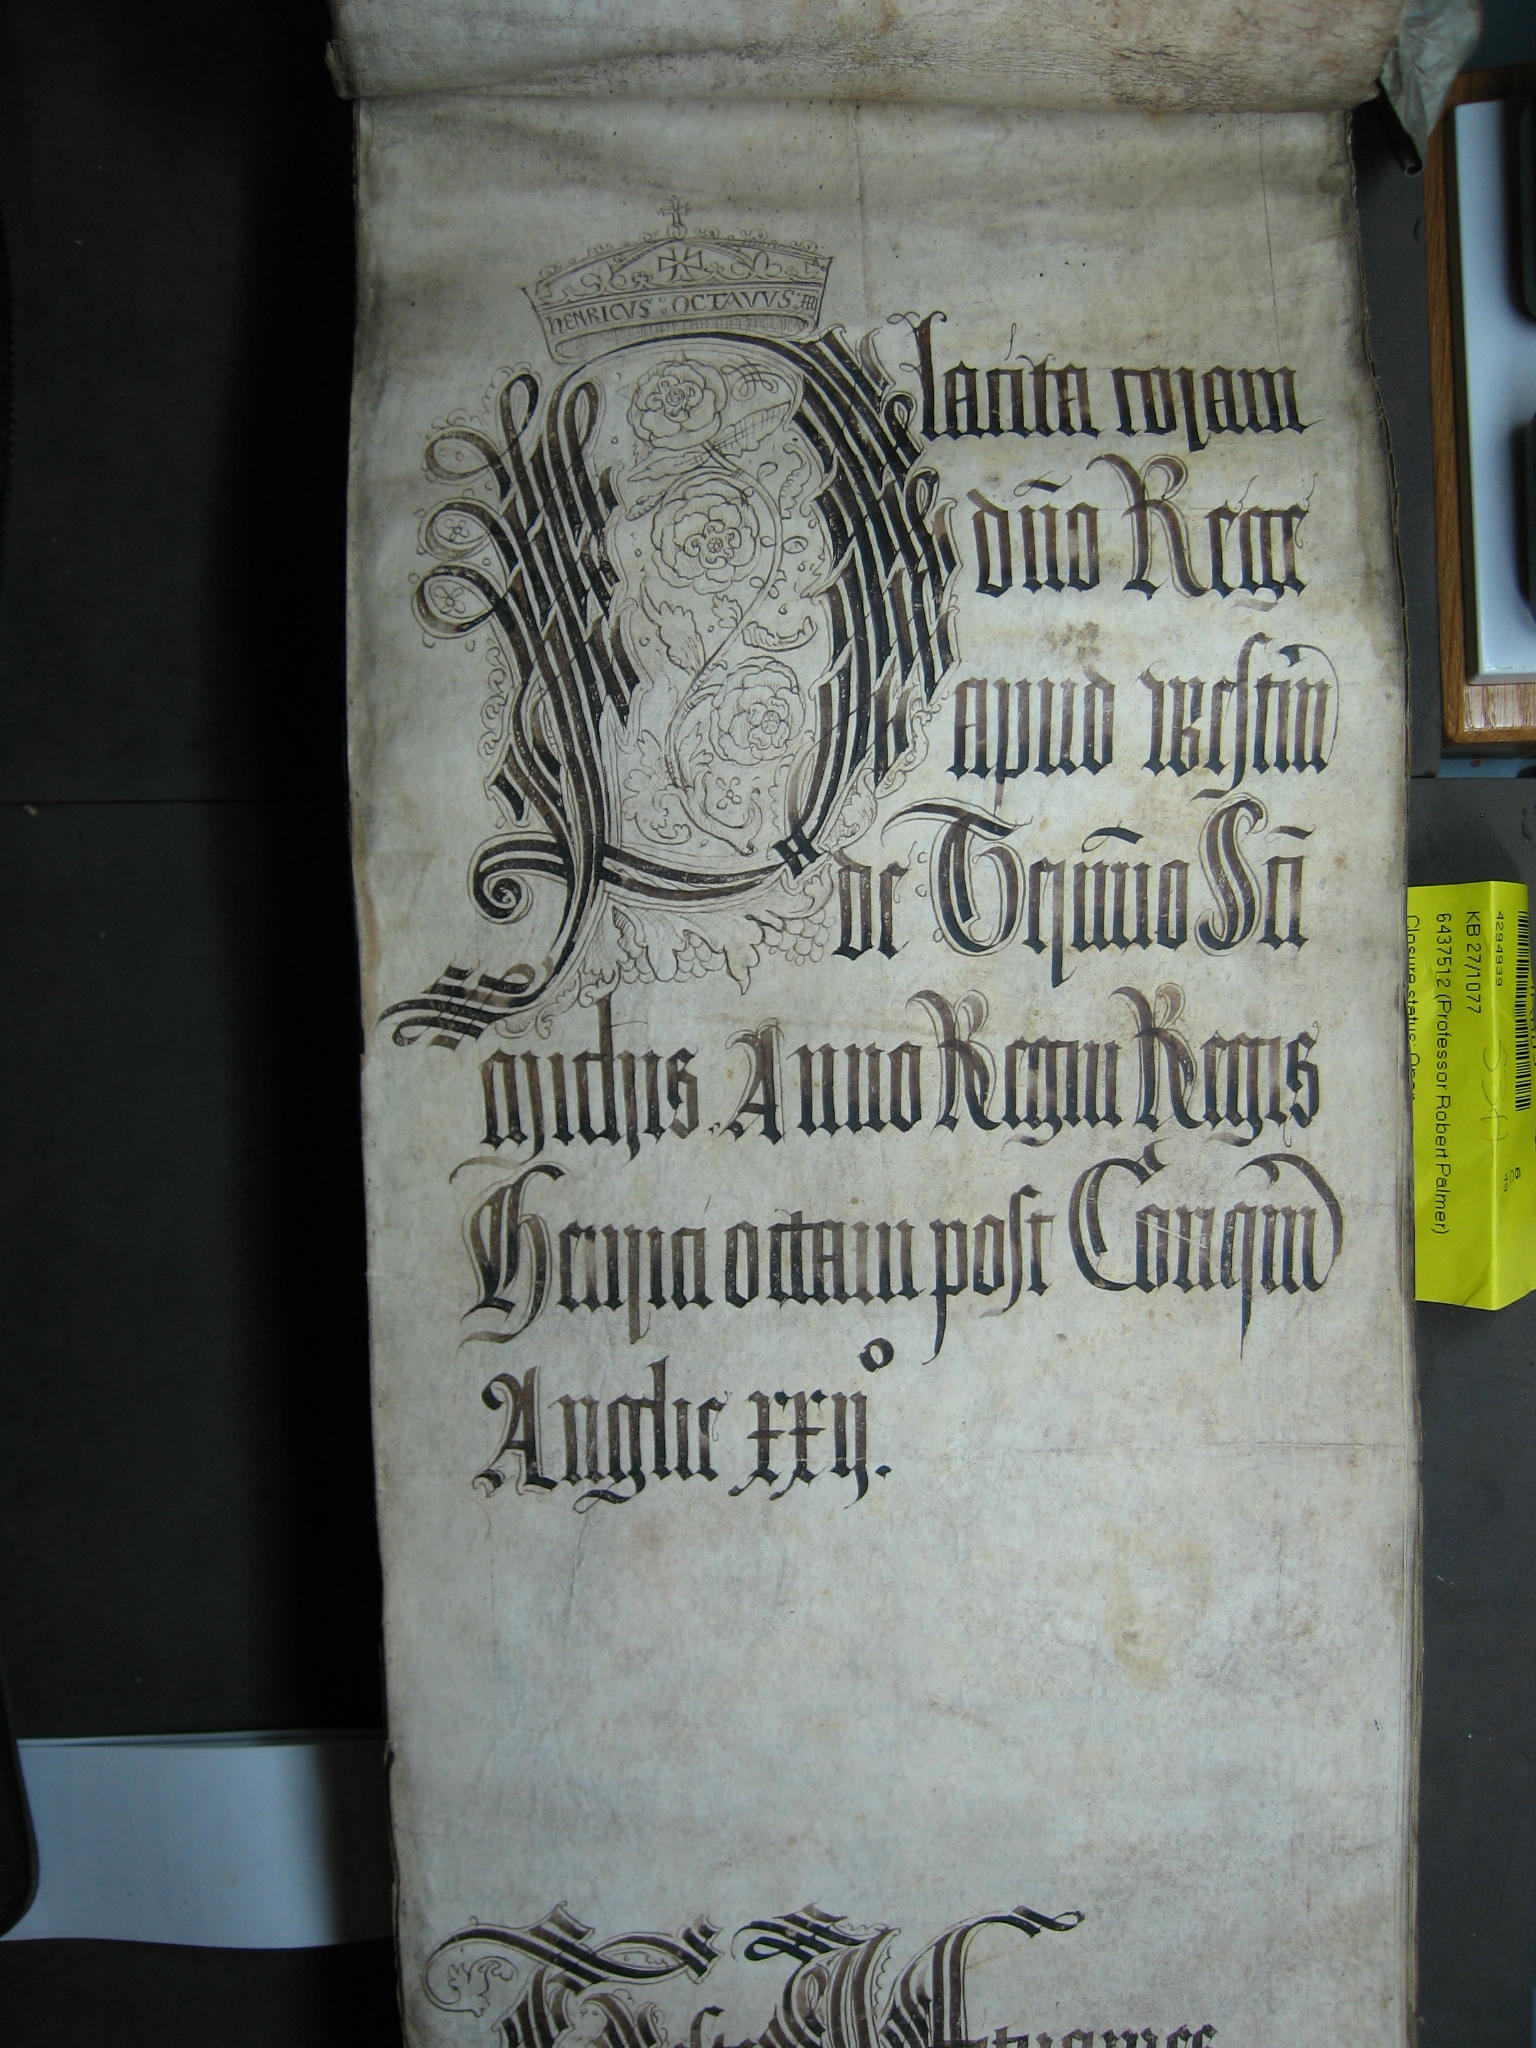 HENRICVS : OCTAVVS :
Placita coram
dn̄o Rege
apud westm̄
de T̕mīno Sc̄i
Michīs Anno Regni Regis
Henrici octavi post Conqm̄
Anglie xxijº.
4294939
KB 27/1077
6437512 (Professor Robert Palmer)
Closure status: Open